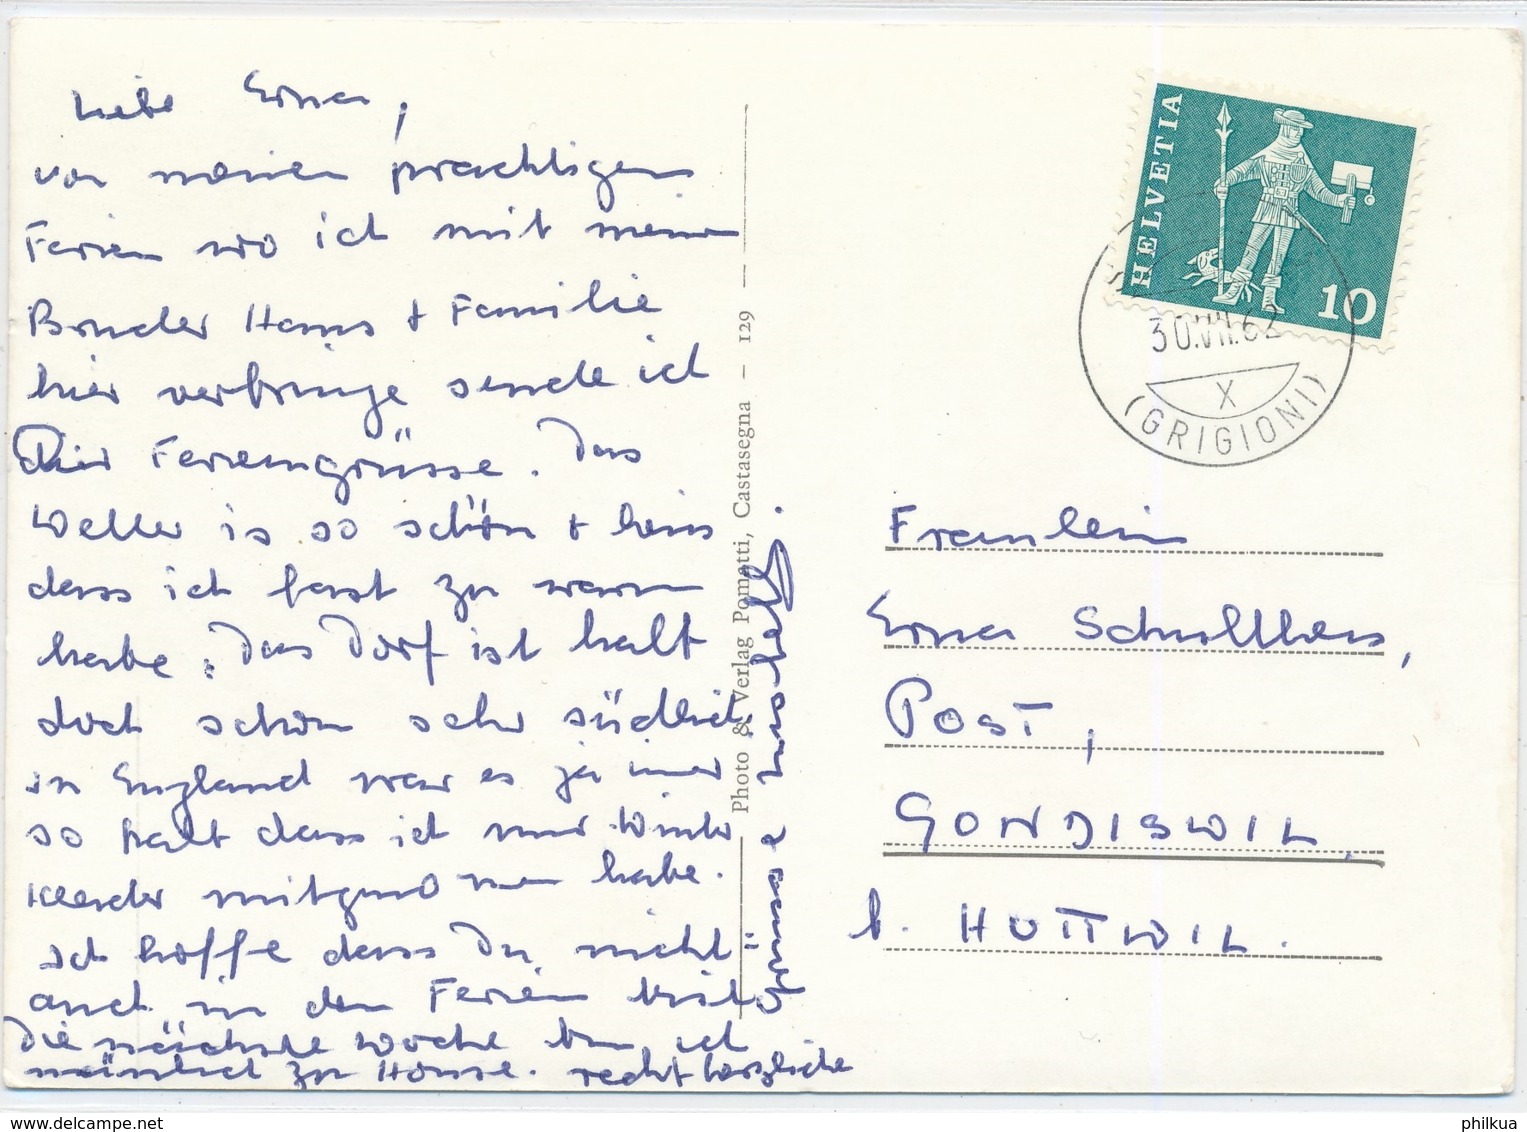 Liebe Erna,
von meinen prachtigen
Ferien wo ich mit meinem
Bruder Hans + Familie
hier verbringe sende ich
Dir Feriengrüsse. Das
Wetter is so schön + heiss
dass ich fast zu warm
habe. Das Dorf ist halt
doch schon sehr südlich
in England war es ja immer
so kalt dass ich nur Winter
Kleider mitgenommen habe.
Ich hoffe dass Du nicht
auch in den Ferien bist.
Die nächste Woche bin ich
nämlich zu Hause. recht herzliche
Grüsse
Photo & Verlag Pomatti, Castasegna – 129
HELVETIA
10
30.VII.62
X
(GRIGIONI)
Fraulein
Erna Schulthess,
POST,
GONDISWIL,
b. HUTTWIL.
delcampe.net
philkua